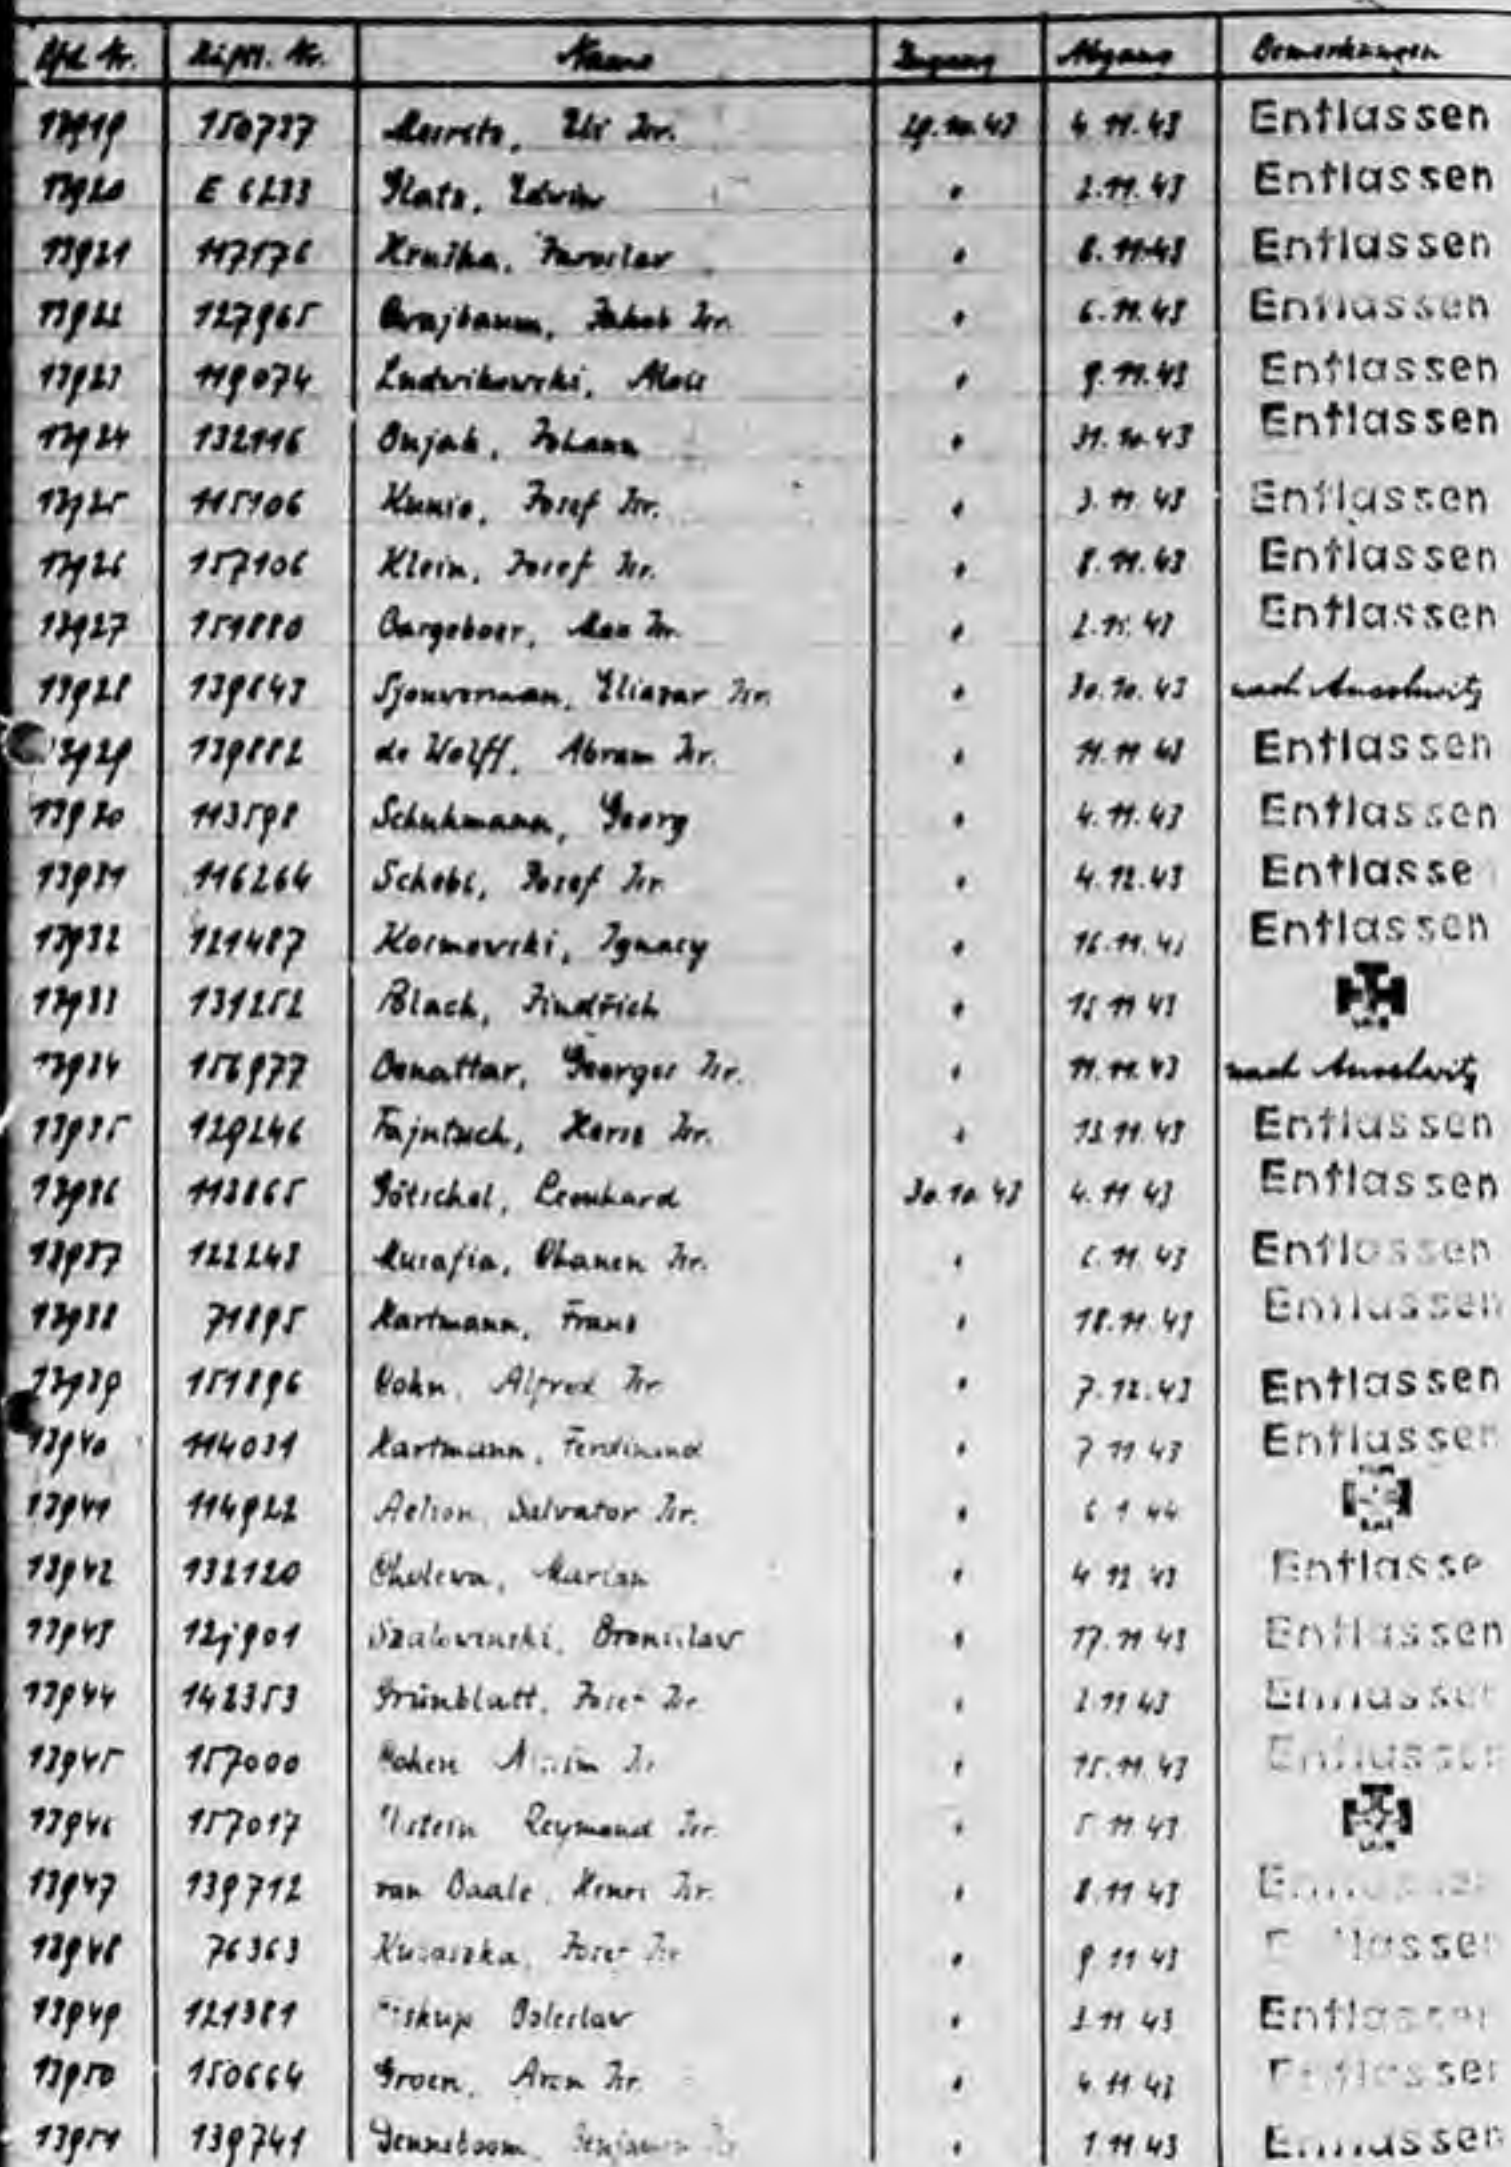 Lfd. Nr. Häftl. Nr. Name Zugang Abgang Bemerkungen
13919 150737 Meirits, Eli Isr. 29.10.43 4.11.43 Entlassen
13920 E 6233 Glatz, Edwin " 2.11.43 Entlassen
13921 117176 Hruška, Jaroslav " 8.11.43 Entlassen
13922 127965 Brajbaum, Jakob Isr. " 6.11.43 Entlassen
13923 119074 Ludwikowski, Alois " 9.11.43 Entlassen
13924 132116 Bujak, Johann " 31.10.43 Entlassen
13925 115106 Kunio, Josef Isr. " 3.11.43 Entlassen
13926 157106 Klein, Josef Isr. " 8.11.43 Entlassen
13927 151880 Bargeboer, Max Isr. " 2.11.43 Entlassen
13928 139643 Sjouwerman, Eliazar Isr. " 30.10.43 nach Auschwitz
13929 139882 de Wolff, Abram Isr. " 11.11.43 Entlassen
13930 113598 Schuhmann, Georg " 4.11.43 Entlassen
13931 116264 Schebi, Josef Isr. " 4.12.43 Entlasse
13932 121487 Kosmowski, Ignacy " 16.11.43 Entlassen
13933 131252 Blach, Jindřich " 15.11.43
13934 156977 Benattar, Georges Isr. " 11.11.43 nach Auschwitz
13935 129246 Fajntuch, Hersz Isr. " 13.11.43 Entlassen
13936 113865 Götschel, Leonhard 30.10.43 4.11.43 Entlassen
13937 122243 Musafia, Chanen Isr. " 6.11.43 Entlassen
13938 71895 Hartmann, Franz " 18.11.43 Entlassen
13939 151896 Cohn, Alfred Isr. " 7.12.43 Entlassen
13940 114031 Hartmann, Ferdinand " 7.11.43 Entlassen
13941 114922 Aelion, Salvator Isr. " 6.1.44
13942 132120 Cholewa, Marian " 4.12.43 Entlasse
13943 12j901 Szalowinski, Bronislaw " 17.11.43 Entlassen
13944 142353 Grünblatt, Josef Isr. " 2.11.43 Entlassen
13945 157000 Cohen Isr. " 15.11.43 Entlassen
13946 157017 Reymond Isr. " 5.11.43
13947 139712 van Baale, Henri Isr. " 8.11.43
13948 76363 Josef Isr. " 9.11.43
13949 121381 Boleslaw " 3.11.43 Entlassen
13950 150664 Groen, Aron Isr. " 4.11.43 Entlassen
13951 139741 Denneboom, Benjamin Isr. " 1.11.43 Entlassen